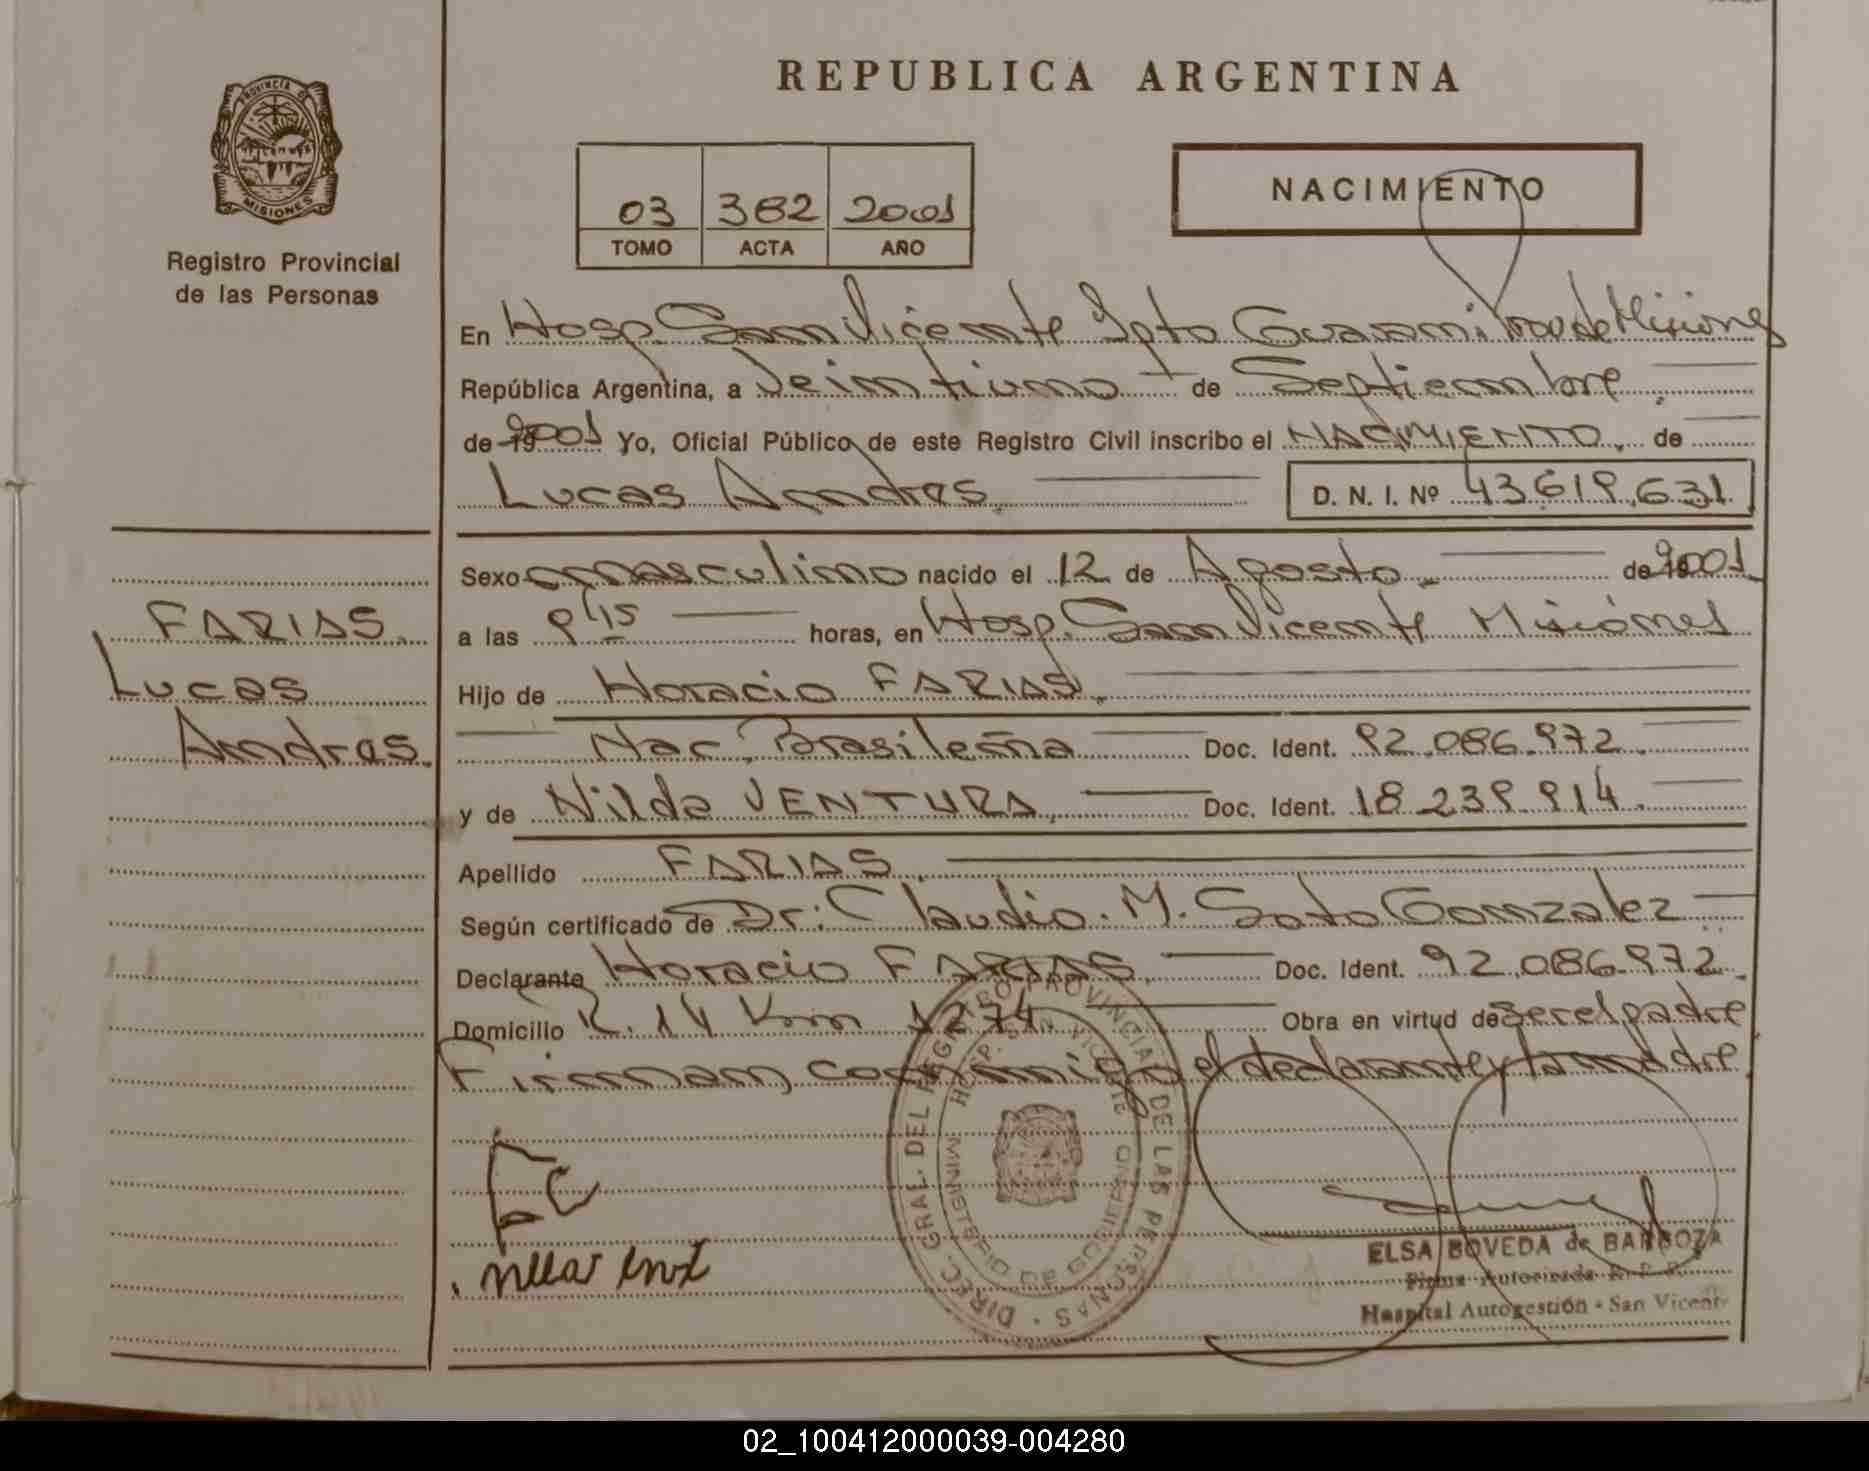 REPUBLICA ARGENTINA
PROVINCIA DE
MISIONES
Registro Provincial
de las Personas
03 382 2001
TOMO ACTA AÑO
NACIMIENTO
En Hosp. San Vicente Dpto Guarani Prov de Misiones
República Argentina, a Veintiuno de Septiembre
de 2001 Yo, Oficial Público de este Registro Civil inscribo el NACIMIENTO de
Lucas Andres D. N. I. Nº 43.619.631
Sexo masculino nacido el 12 de Agosto de 2001
a las 9:15 horas, en Hosp. San Vicente Misiones
Hijo de Horacio FARIAS
Nac. Brasileña Doc. Ident. 92.086.972
y de Nilda VENTURA Doc. Ident. 18.239.914
Apellido FARIAS
Según certificado de Dr. Claudio. M. Soto Gonzalez
Declarante Horacio FARIAS Doc. Ident. 92.086.972
Domicilio R. 14 Km 1274 Obra en virtud de ser el padre
Firman conmigo el declarante y la madre
FARIAS
Lucas
Andres.
DIREC. GRAL. DEL REGISTRO PROVINCIAL DE LAS PERSONAS
HOSP. SAN VICENTE
MINISTERIO DE GOBIERNO
ELSA BOVEDA de BARBOZA
Firma Autorizada R. P. P.
Hospital Autogestión - San Vicente
02_100412000039-004280